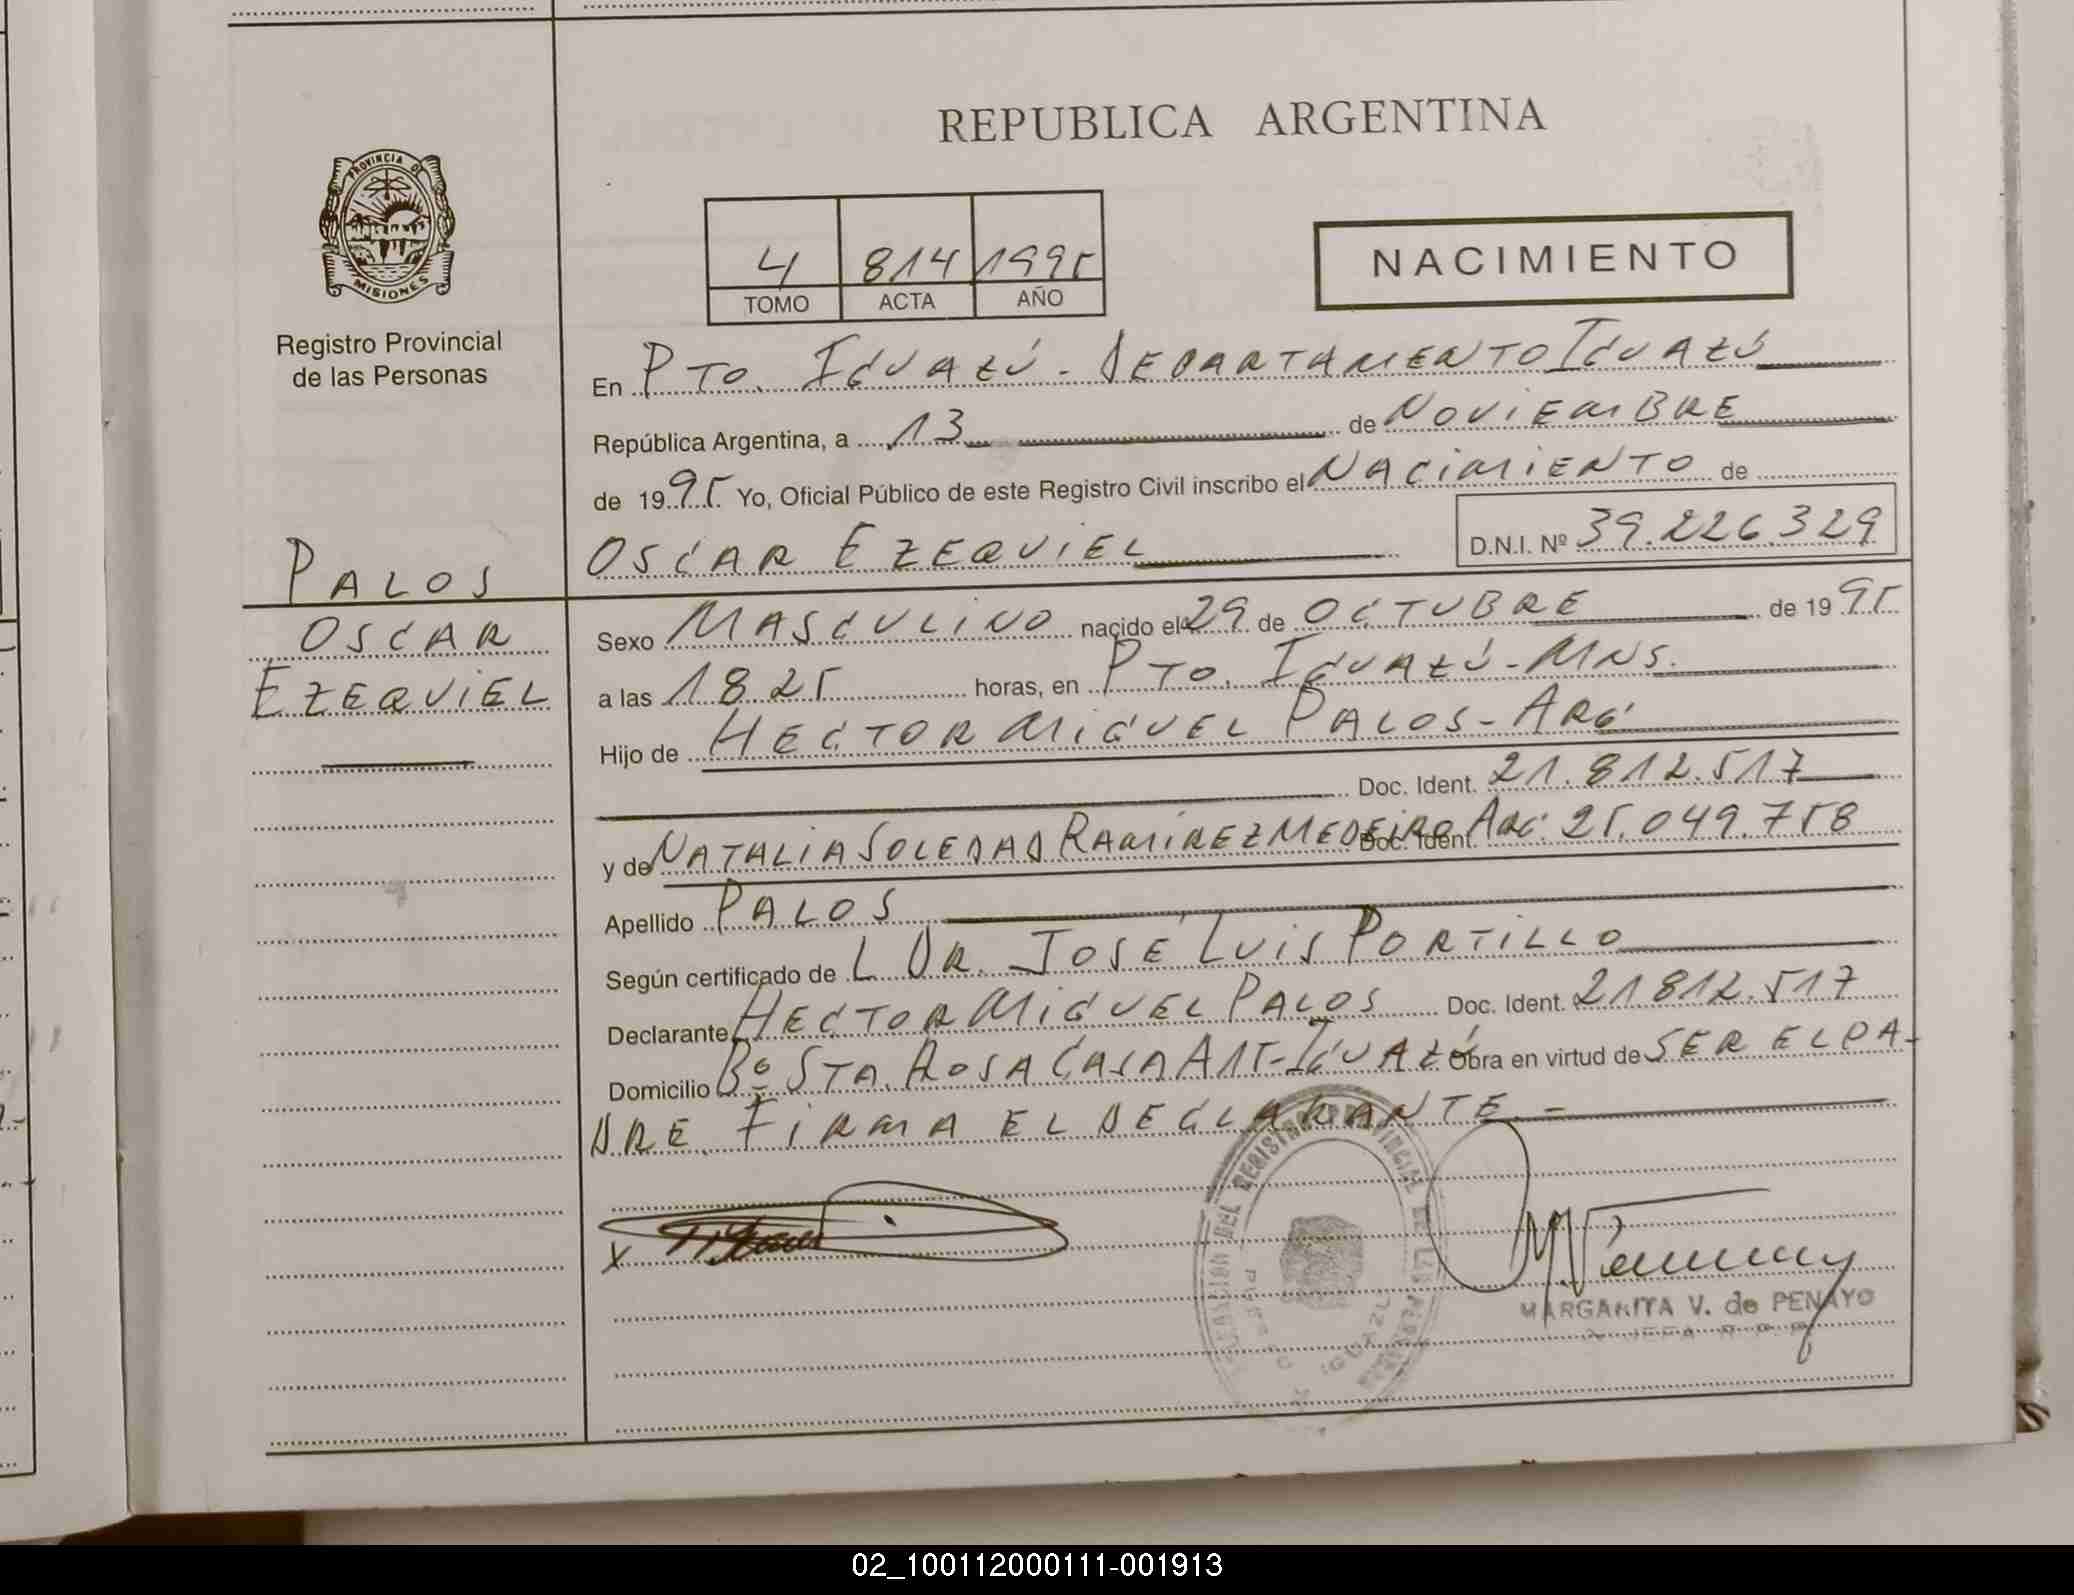 REPUBLICA ARGENTINA
PROVINCIA DE
MISIONES
Registro Provincial
de las Personas
4 814 1995
TOMO ACTA AÑO
NACIMIENTO
En PTO. IGUAZÚ - DEPARTAMENTO IGUAZÚ
República Argentina, a 13 de NOVIEMBRE
de 1995 Yo, Oficial Público de este Registro Civil inscribo el NACIMIENTO de
OSCAR EZEQUIEL D.N.I. Nº 39.226.329
PALOS
OSCAR
EZEQUIEL
Sexo MASCULINO nacido el 29 de OCTUBRE de 1995
a las 1825 horas, en PTO. IGUAZÚ - MNS.
Hijo de HECTOR MIGUEL PALOS - ARG
Doc. Ident. 21.812.517
y de NATALIA SOLEDAD RAMIREZ MEDEIRO ARG. Doc. Ident. 25.049.758
Apellido PALOS
Según certificado de L DR. JOSÉ LUIS PORTILLO
Declarante HECTOR MIGUEL PALOS Doc. Ident. 21812.517
Domicilio Bº STA. ROSA CASA A15 - IGUAZÚ Obra en virtud de SER EL PA-
DRE. FIRMA EL DECLARANTE. -
X
DEL REGISTRO PROVINCIAL DE LAS PERSONAS
PUERTO IGUAZU
MARGARITA V. de PENAYO
02_100112000111-001913